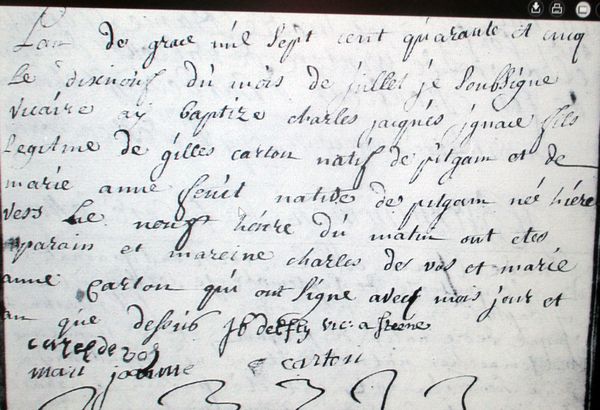 Lan de grace mil sept cent quarante et cinq
Le dixneuf du mois de juillet je soubsigne
vicaire ay baptize charles jacques ignace fils
legitme de gilles carton natif de pitgam et de
marie anne native de pitgam né hiere
vers Le neuf heure du matin ont etes
parain et mareine charles de vos et marie
anne Carton qui ont signe avec mois jour et
an que dessus vic:
de vos
carton